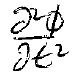 \frac{\partial^2 \phi}{\partial t^2}